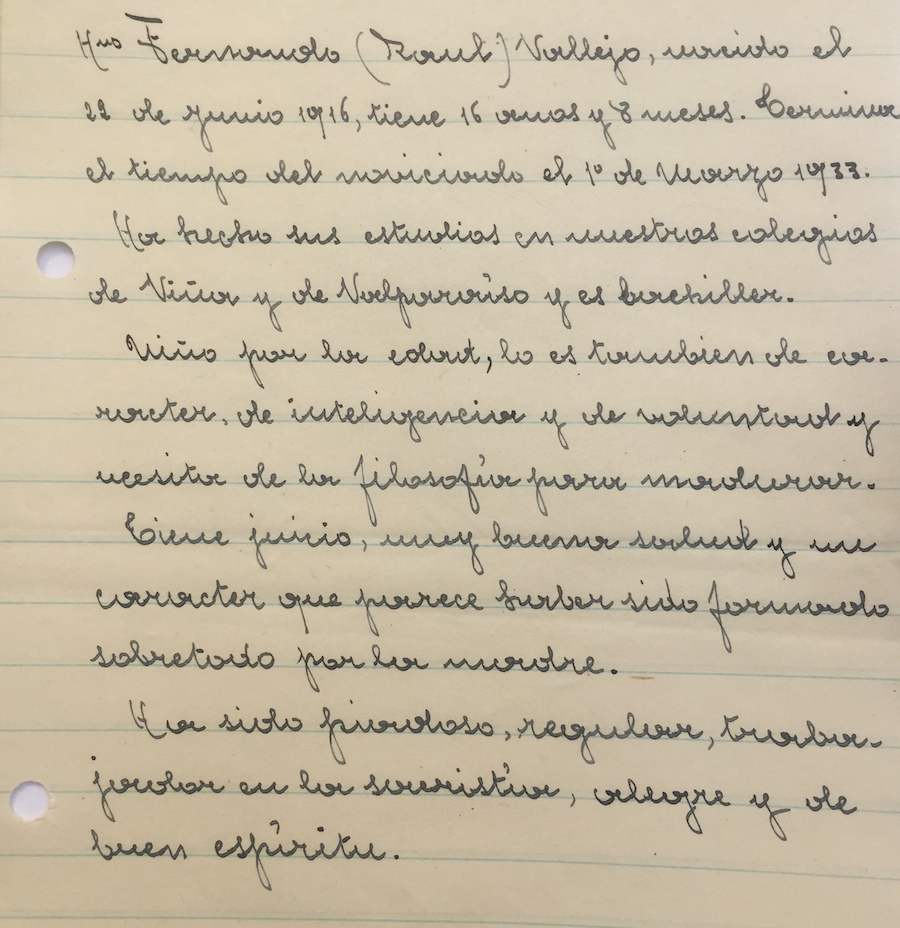 Hno Fernando (Raul) Vallejo, nacido el
22 de Junio 1916, tiene 16 anos y 8 meses. Termina
el tiempo del noviciado el 1º de Marzo 1933.
Ha hecho sus estudios en nuestros colegios
de Viña y de Valparaíso y es bachiller.
Niño por la edad, lo es tambien de ca-
racter, de inteligencia y de voluntad y
necesita de la filosofía para madurar.
Tiene juicio, muy buena salud y un
caracter que parece haber sido formado
sobretodo por la madre.
Ha sido piadoso, regular, traba-
jador en la sacristía, alegre y de
buen espíritu.